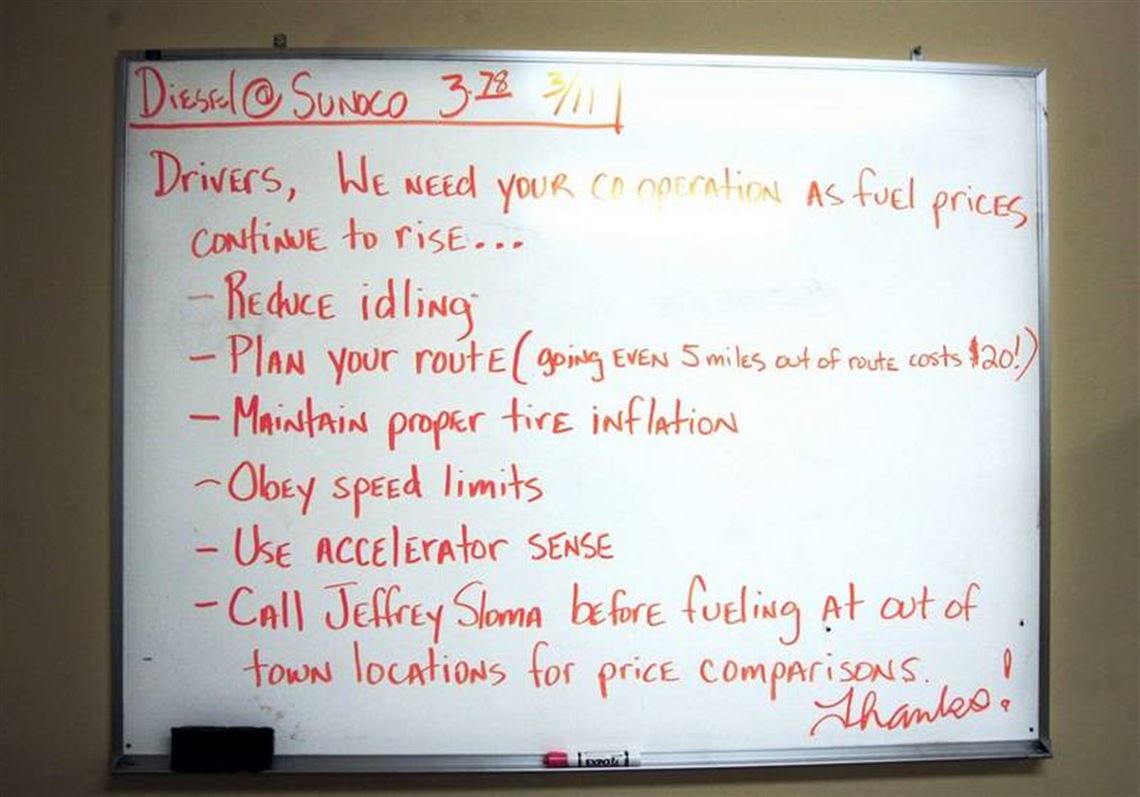 Diesel @ Sunoco 3.78 3/11
Drivers, We need your co-operation as fuel prices
continue to rise...
- Reduce idling
- Plan your route (going even 5 miles out of route costs $20!)
- Maintain proper tire inflation
- Obey speed limits
- Use accelerator sense
- Call Jeffrey Sloma before fueling at out of
town locations for price comparisons.
Thanks!
EXPO